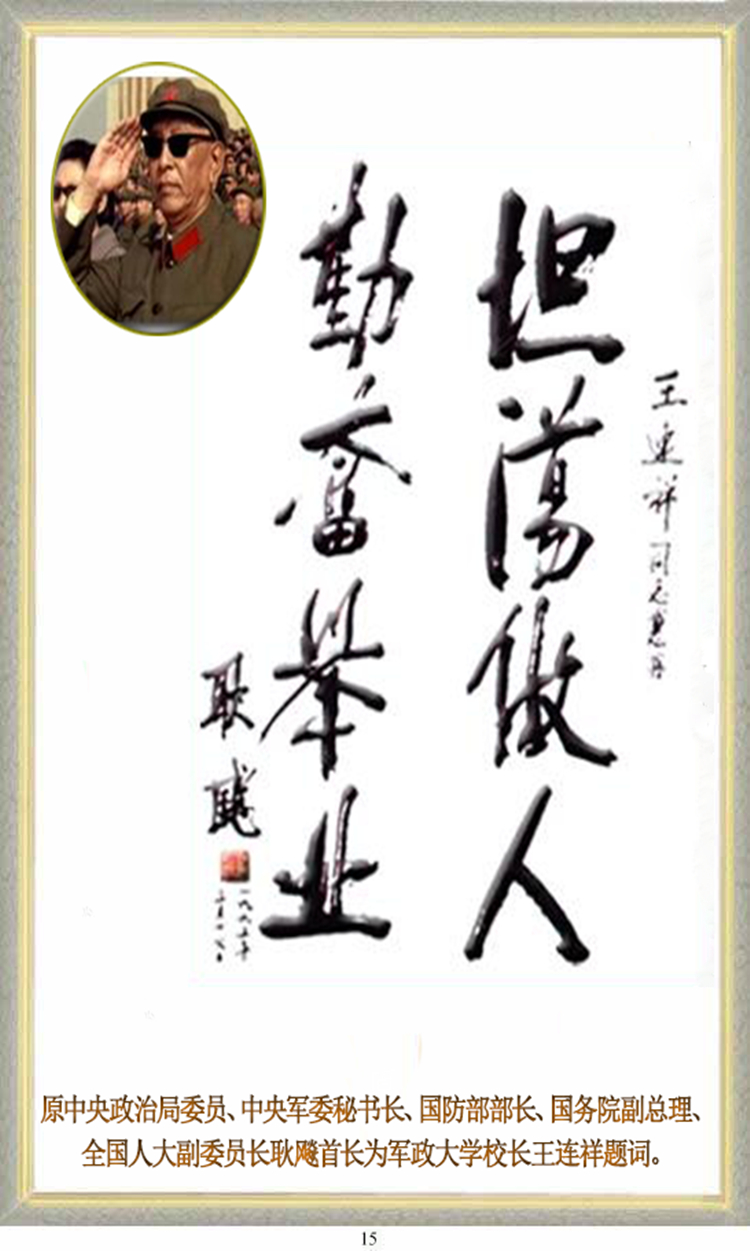 王连祥同志惠存
坦荡做人
勤奋举业
耿飚
原中央政治局委员、中央军委秘书长、国防部部长、国务院副总理、
全国人大副委员长耿飚首长为军政大学校长王连祥题词。
15